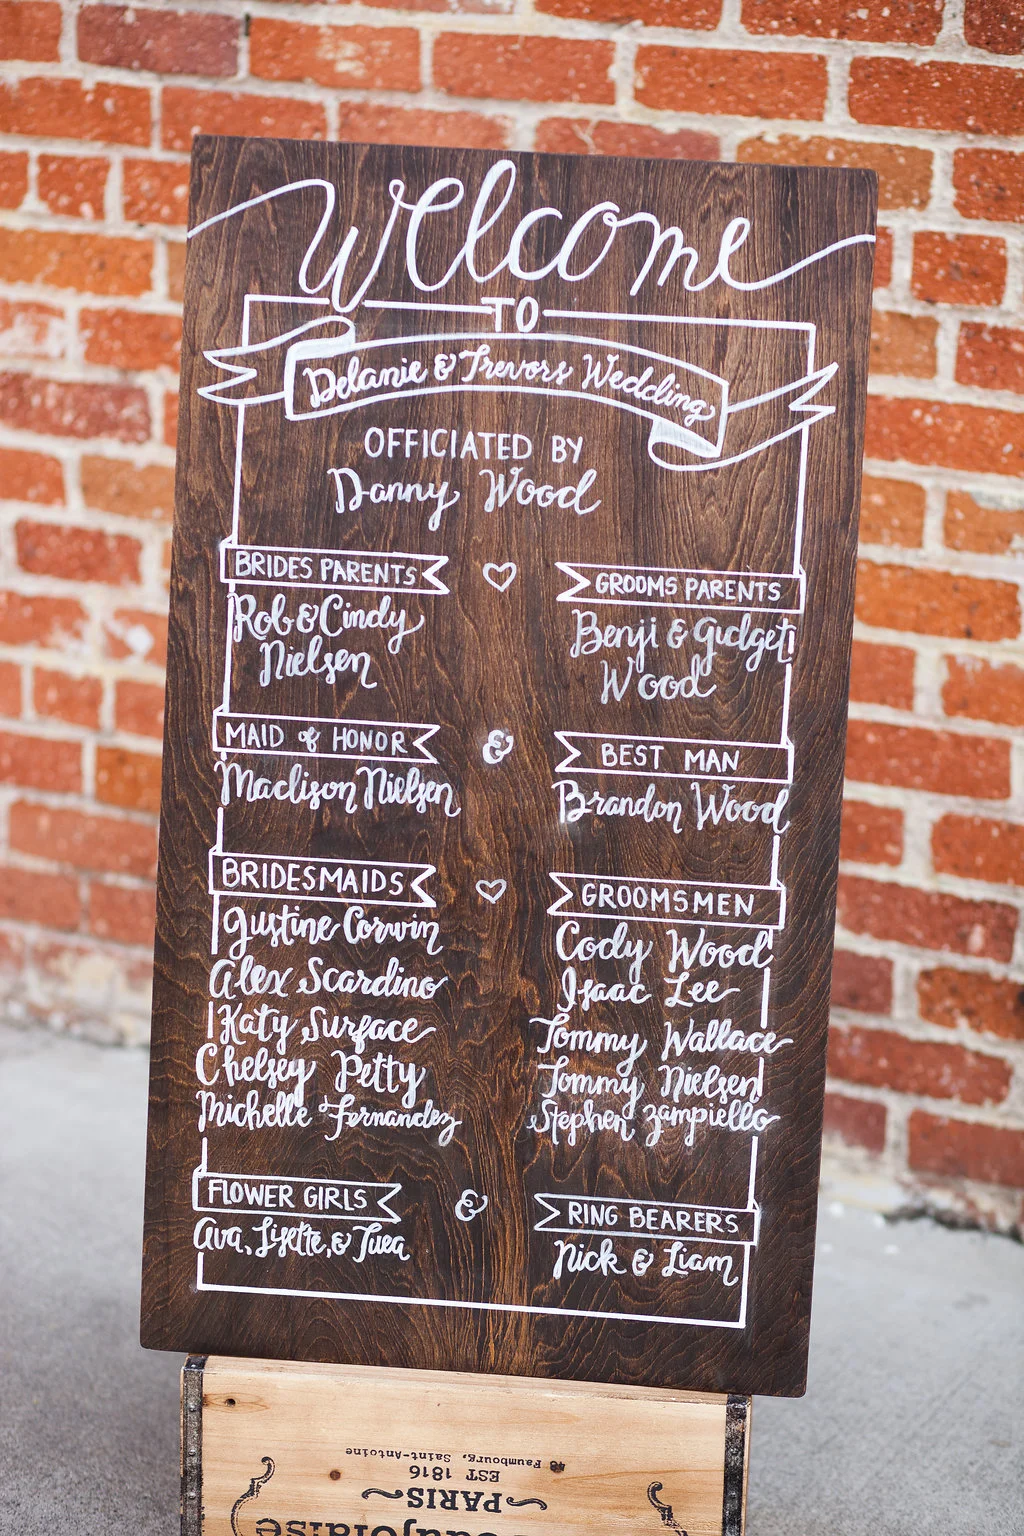 Welcome
TO
Delanie & Trevors Wedding
OFFICIATED BY
Danny Wood
BRIDES PARENTS
Rob & Cindy
Nielsen
GROOMS PARENTS
Benji & Gidget
Wood
MAID of HONOR
Madison Nielsen
&
BEST MAN
Brandon Wood
BRIDESMAIDS
Justine Corwin
Alex Scardino
Katy Surface
Chelsey Petty
Michelle Fernandez
GROOMSMEN
Cody Wood
Isaac Lee
Tommy Wallace
Tommy Nielsen
Stephen Zampiello
FLOWER GIRLS
Ava, Lisette, &
&
RING BEARERS
Nick & Liam
48 Faumbourg, Saint-Antoine
EST 1816
PARIS